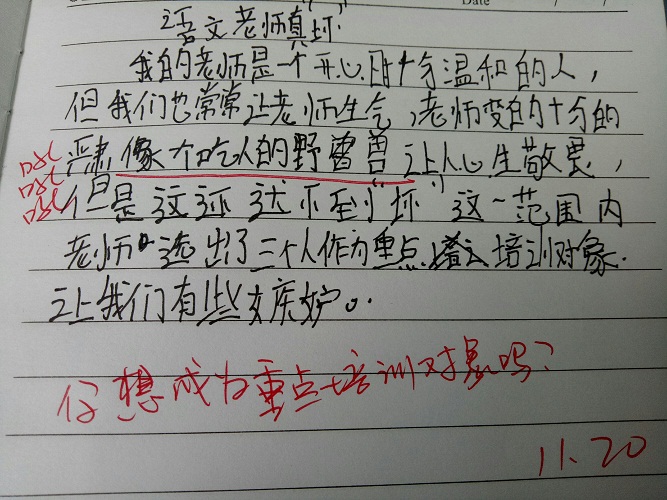 Date
语文老师真“坏”
我的老师是一个开心时十分温和的人，
但我们也常常让老师生气，老师变的十分的
严肃像个吃人的野兽让人心生敬畏，
但是这还达不至“坏”这一范围内
老师选出了三个人作为重点培训对象.
让我们有些嫉妒。
仔想成为重点培训对象吗？
11.20